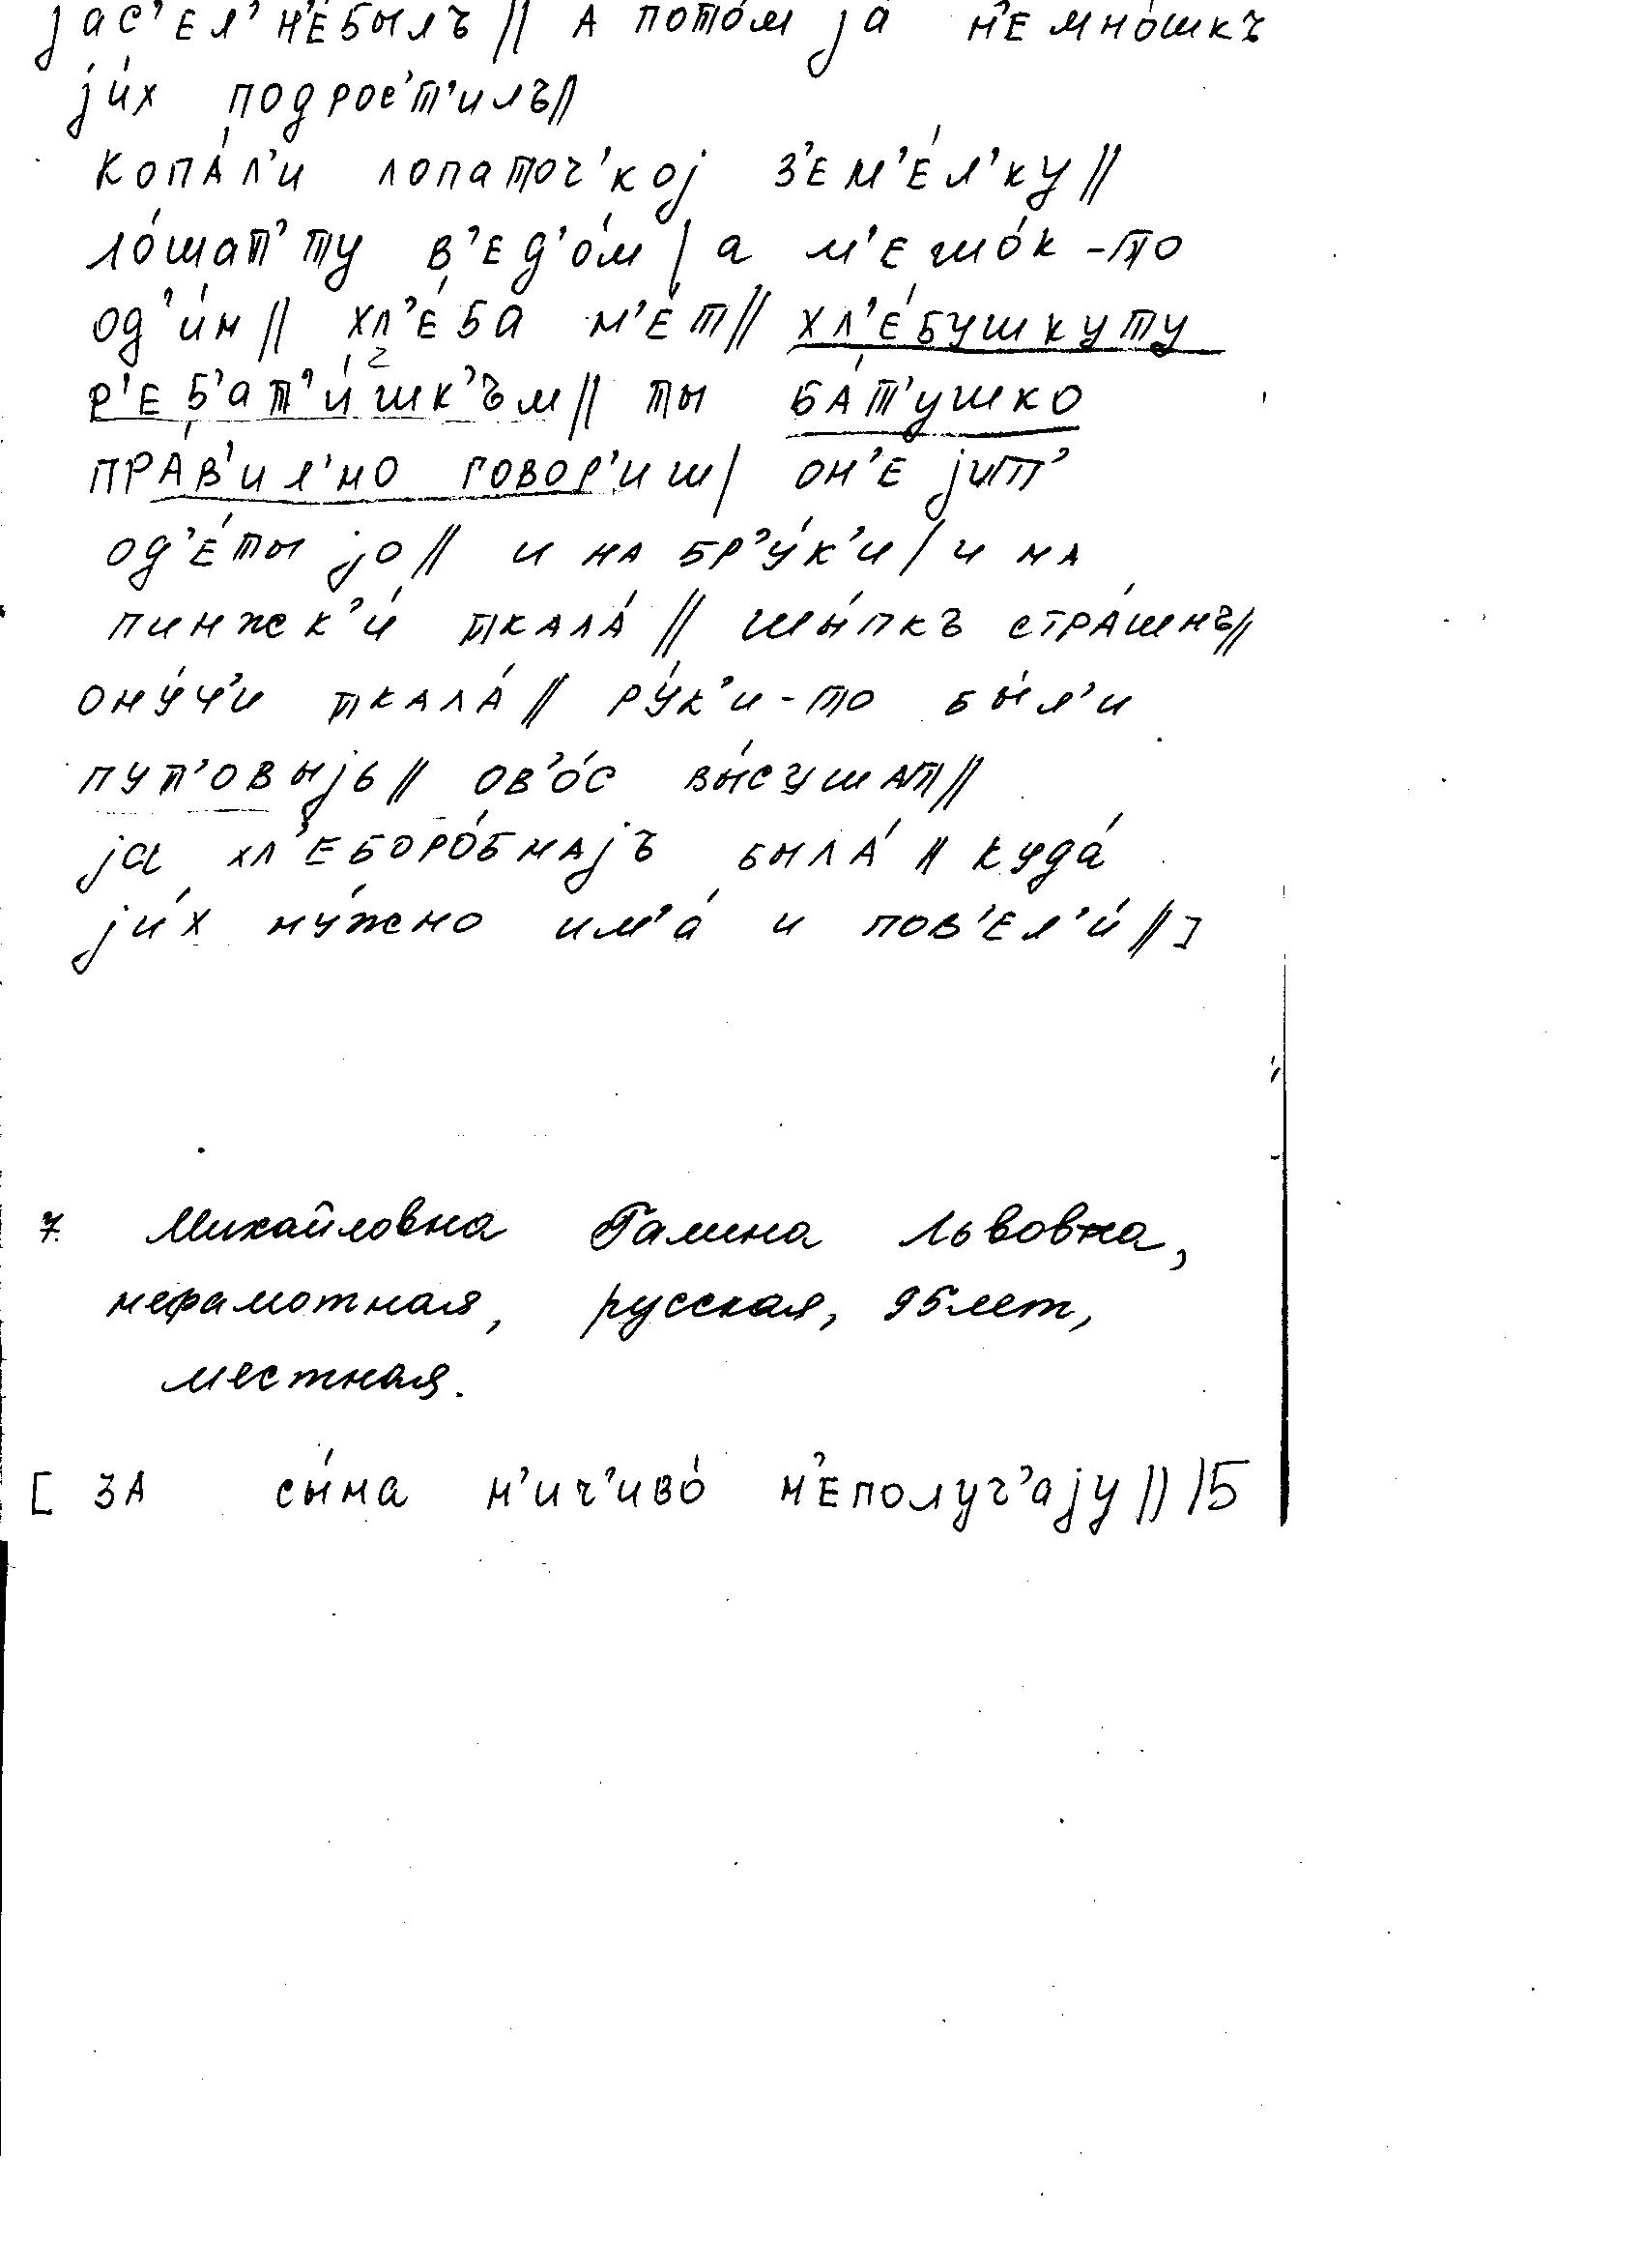 јас’ел’ н’е́былъ // а пото́м ја н’емно́шкъ
ји́х подрос’т’илъ//
копа́л’и лопаточ’кој з’ем’е́л’ку//
ло́шат’ту в’ед’о́м / а м’ешо́к-то
од’и́н // хл’е́ба н’е́т// хл’е́бушкуту
р’еб’ат’и́шк’ъм// ты ба́т’ушко
пра́в’ил’но говор’иш/ он’е јит’
од’е́ты јо // и на бр’у́к’и / и на
пинжск’и́ ткала́ // шы́пкъ стра́шнъ//
ону́ч’и ткала́ // ру́к’и-то бы́л’и
пут’овыјь // ов’о́с вы́сушат//
ја хл’еборо́бнајъ была́ // куда́
ји́х ну́жно им’а́ и пов’ел’и́ // ]
7. Михайловна Галина Львовна,
неграмотная, русская, 95 лет,
местная.
[ за сы́на н’ич’иво́ н’еполуч’ају // 15